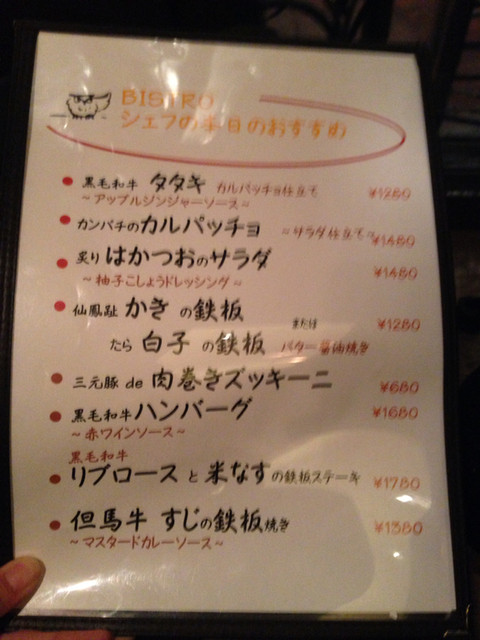 BISTRO
シェフの本日のおすすめ
黒毛和牛 タタキ カルパッチョ仕立て ¥1280
～アップルジンジャーソース～
カンパチのカルパッチョ ～サラダ仕立て～ ¥1480
炙り はかつおのサラダ ¥1480
～柚子こしょうドレッシング～
仙鳳趾 かきの鉄板 または ¥1280
たら 白子の鉄板 バター醤油焼き
三元豚 de 肉巻きズッキーニ ¥680
黒毛和牛ハンバーグ ¥1680
～赤ワインソース～
黒毛和牛
リブロースと米なすの鉄板ステーキ ¥1780
但馬牛 すじの鉄板焼き ¥1380
～マスタードカレーソース～